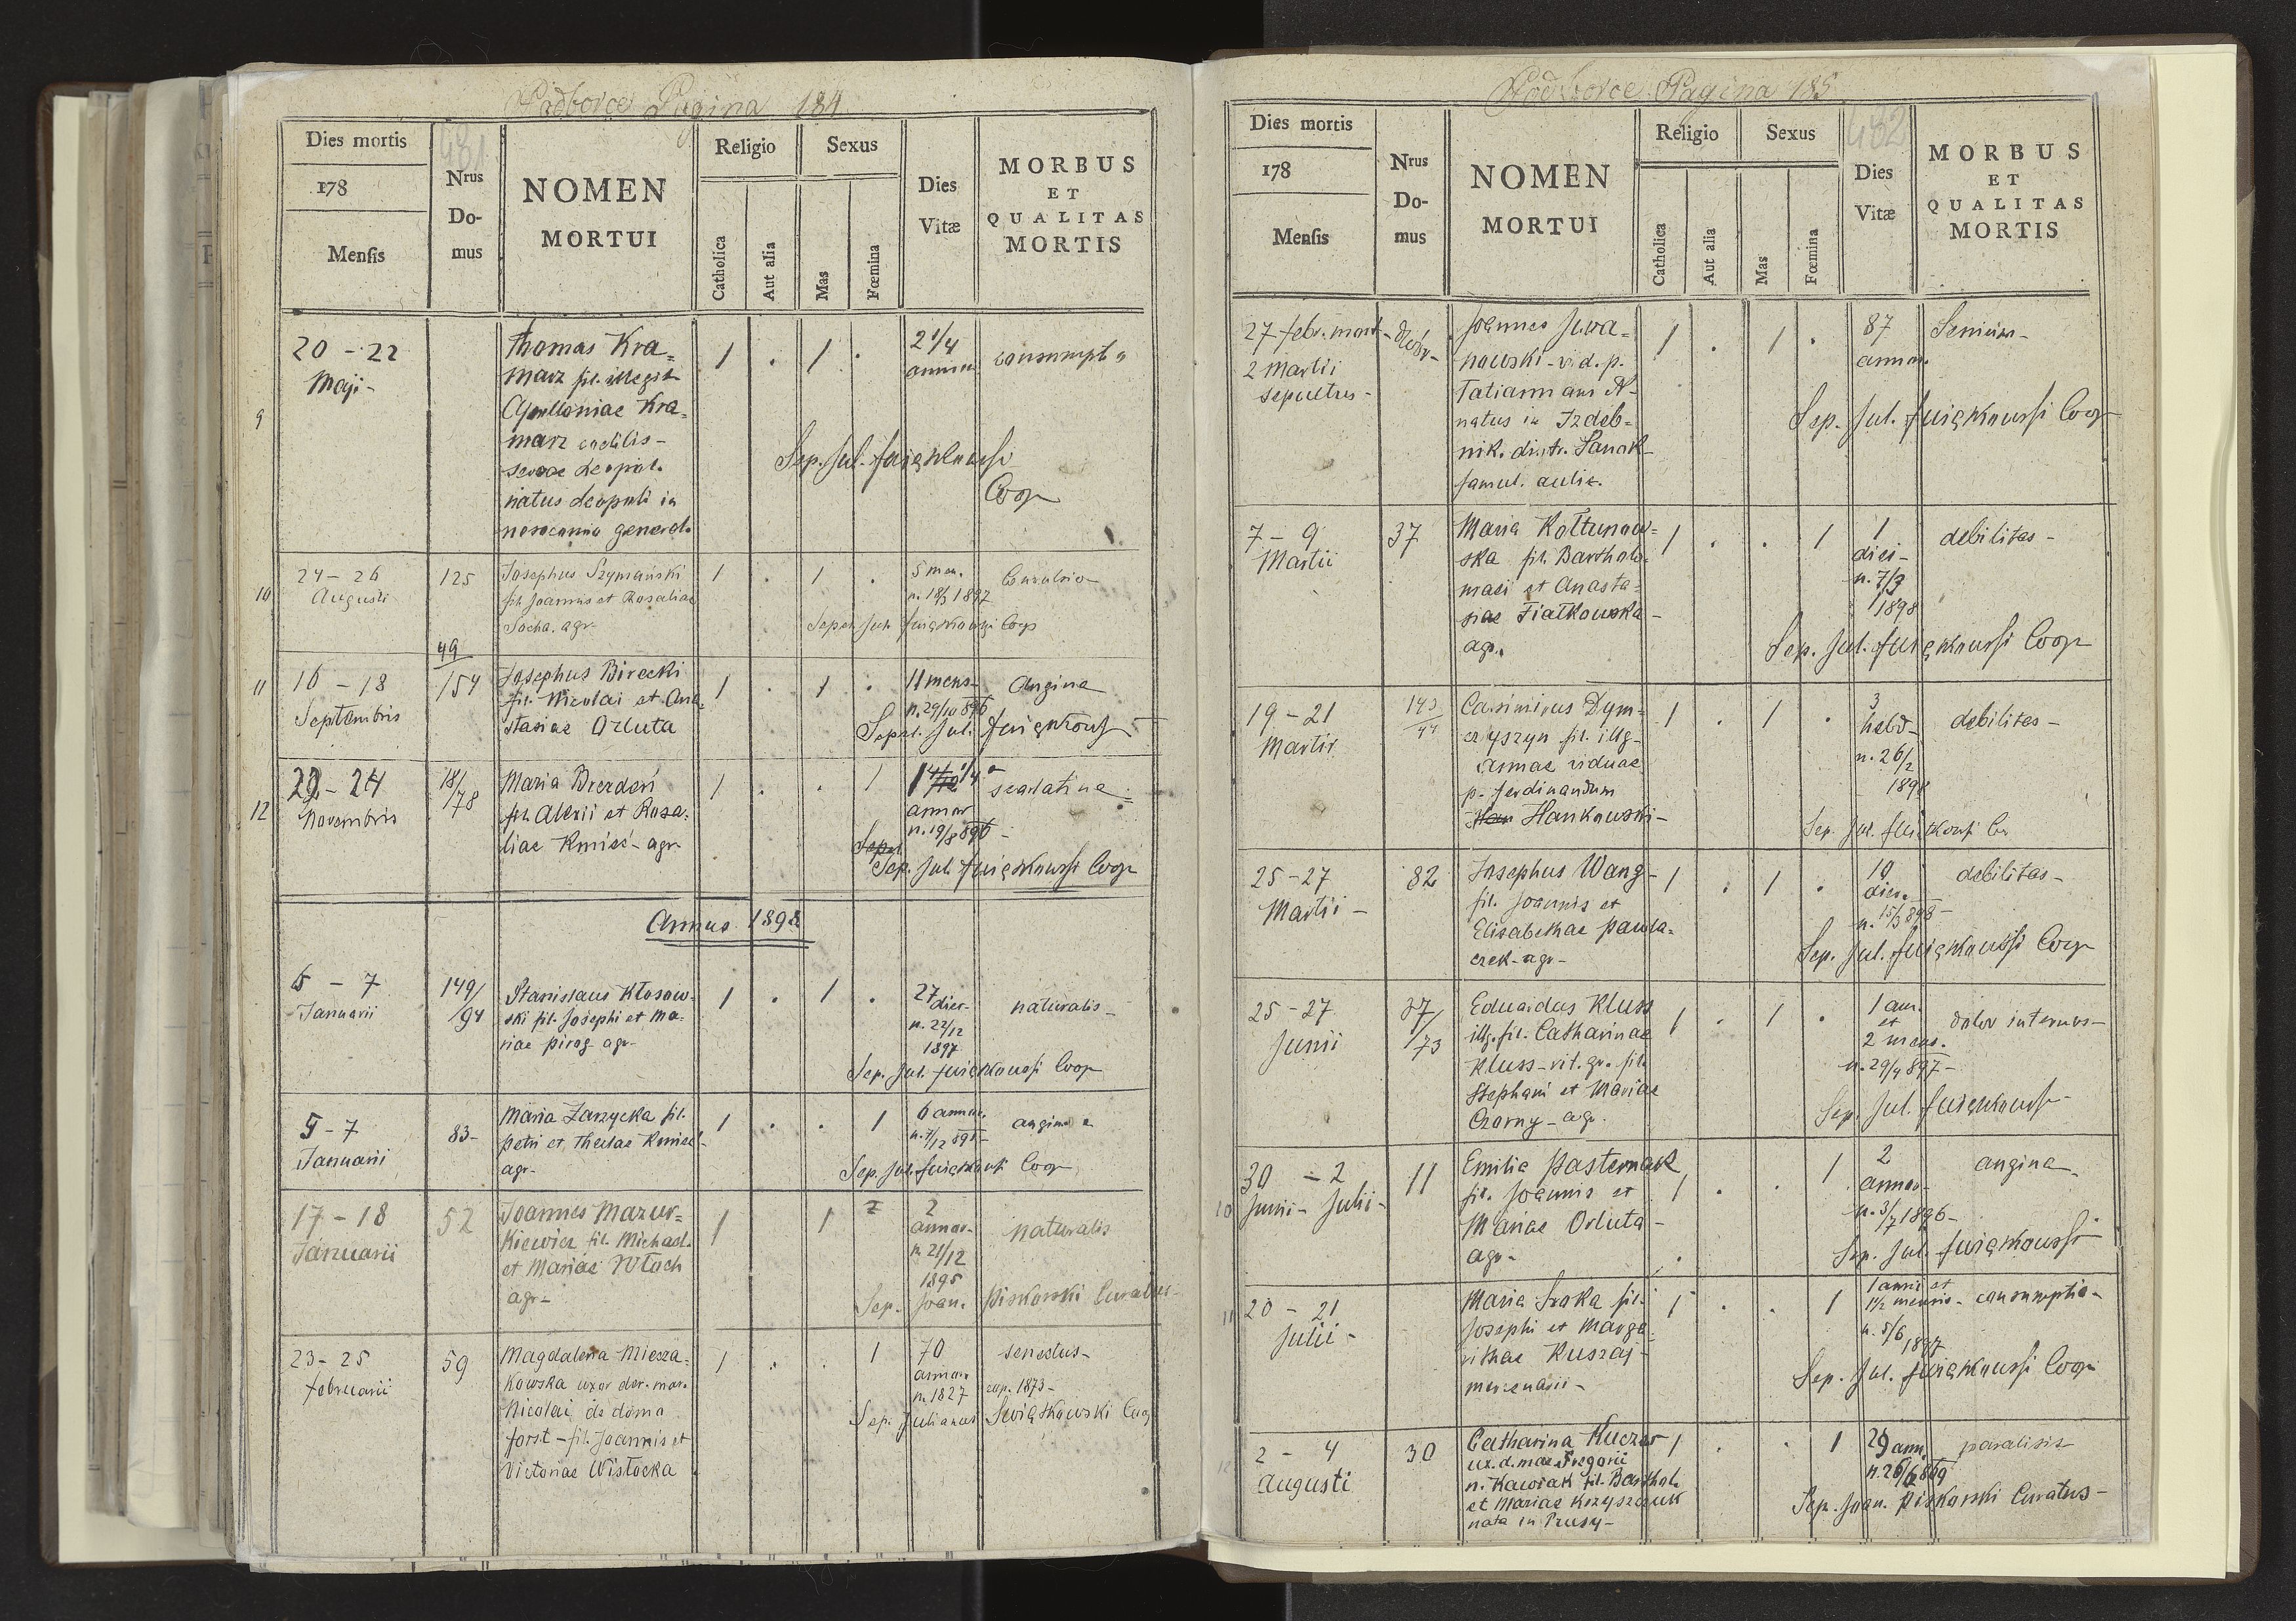 Podborce Pagina 184
481
Dies mortis
178
Mensis
Nrus
Do-
mus
NOMEN
MORTUI
Religio
Catholica
Aut alia
Sexus
Mas
Fœmina
Dies
Vitæ
MORBUS
ET
QUALITAS
MORTIS
9
20 - 22
Maji -
Thomas Kra=
marz fil. illegit.
Apolloniae Kra=
marz
natus Leopoli in
general.
1 . 1 .
2 1/4
annor.
Sep. Jul. Świątkowski
Coop
10
24 - 26
Augusti
125
Josephus Szymański
fil. Joannis et Rosaliae
Socha. agr.
1 . 1 .
5 men.
n. 18/3 1897
Convulsio -
Sepel. Jul. Świątkowski Coop
11
16 - 18
Septembris
49
154
Josephus Birecki
fil. Nicolai et Ana=
stasiae Orluta
1 . 1 .
11 mens.
n. 29/10 896
Angina
Sepel. Jul. Świątkowski
12
22 - 24
Novembris
18/
78
Maria Brezdeń
fil. Alexii et Rosa=
liae Kmieć - agr.
1 . . 1
1 1/4
annor
n. 19/8 896 -
scarlatina -
Sep. Jul. Świątkowski Coop
Annus 1898
6 - 7
Januarii
149/
94
Stanislaus Kłosow=
ski fil. Josephi et Ma=
riae Pirog agr.
1 . 1 .
27 dier.
n. 22/12
1897
naturalis -
Sep. Jul. Świątkowski Coop
5 - 7
Januarii
83 -
Maria Zarzycka fil.
Petri et Theclae Kmieć -
agr -
1 . . 1
6 annor.
angina
Sep. Jul. Świątkowski Coop
17 - 18
Januarii
52
Joannes Mazur=
kiewicz fil. Michael.
et Mariae Włoch
agr -
1 1
2
annor.
n. 21/12
1895
naturalis
Sep. Joan. Piskorski Curatus -
23 - 25
Februarii
59
Magdalena Miesza=
kowska uxor der. mar.
Nicolai de domo
Forst - fil. Joannis et
Victoriae Wisłocka
1 . . 1
70
annor.
n. 1827
senectus -
cop. 1873 -
Sep. Julianus Świątkowski Coop
Podborce Pagina 185
482
Dies mortis
178
Mensis
Nrus
Do-
mus
NOMEN
MORTUI
Religio
Catholica
Aut alia
Sexus
Mas
Fœmina
Dies
Vitæ
MORBUS
ET
QUALITAS
MORTIS
27 Febr. mort -
2 Martii
sepultus -
Joannes Iwa=
nowski - vid. p.
Tatiannam N -
natus in Izdeb=
nik. distr. Sanok -
famul. aulic.
1 . 1 .
87
annor.
Senium -
Sep. Jul. Świątkowski Coop
7 - 9
Martii
37
Maria Kołtunow=
ska fil. Bartholo=
maei et Anasta=
siae Fiałkowska -
agr.
1 . . 1
1
diei -
n. 7/3
1898
debilitas -
Sep. Jul. Świątkowski Coop
19 - 21
Martii
143
44
Casimirus Dym=
czyszyn fil. illg.
Annae viduae
p. Ferdinandum
Hankowski -
1 . 1 .
3
hebd -
n. 26/2
1898
debilitas -
Sep. Jul. Świątkowski
25 - 27
Martii -
82
Josephus Wang -
fil. Joannis et
Elisabethae Pawla=
czek - agr -
1 . 1 .
10
dier.
n. 15/3 898 -
debilitas -
Sep. Jul. Świątkowski Coop
25 - 27
Junii
37/
73
Eduardus Kluss
illg. fil. Catharinae
Kluss - vit. gr. fil.
Stephani et Mariae
Czorny - agr.
1 . 1 .
1 ann.
et
2 mens.
n. 29/4 897 -
dolor internus -
Sep. Jul. Świątkowski -
10
30 - 2
Junii - Julii -
11
Emilia Pasternak
fil. Joannis et
Mariae Orluta -
agr -
1 . . 1
2
annor -
n. 3/7 1896 -
angina -
Sep. Jul. Świątkowski
11
20 - 21
Julii -
Maria Sroka fil.
Josephi et Marga=
rithae Kuszaj -
mercenarii -
1 . . 1
1 anni et
1 1/2 mensis -
n. 5/6 1897
consumptio -
Sep. Jul. Świątkowski Coop
12
2 - 4
Augusti
30
Catharina Kuczer
ux. d. mar. Gregorii
n. Kawiak fil. Barthol.
et Mariae Krzyszczuk
nata in Prusy -
1 . . 1
29 ann.
n. 26/6 869
paralisis
Sep. Joan. Piskorski Curatus -